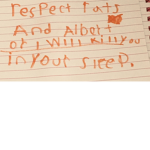 respect rats
And Albert
or I Will Kill you
in your sleep.